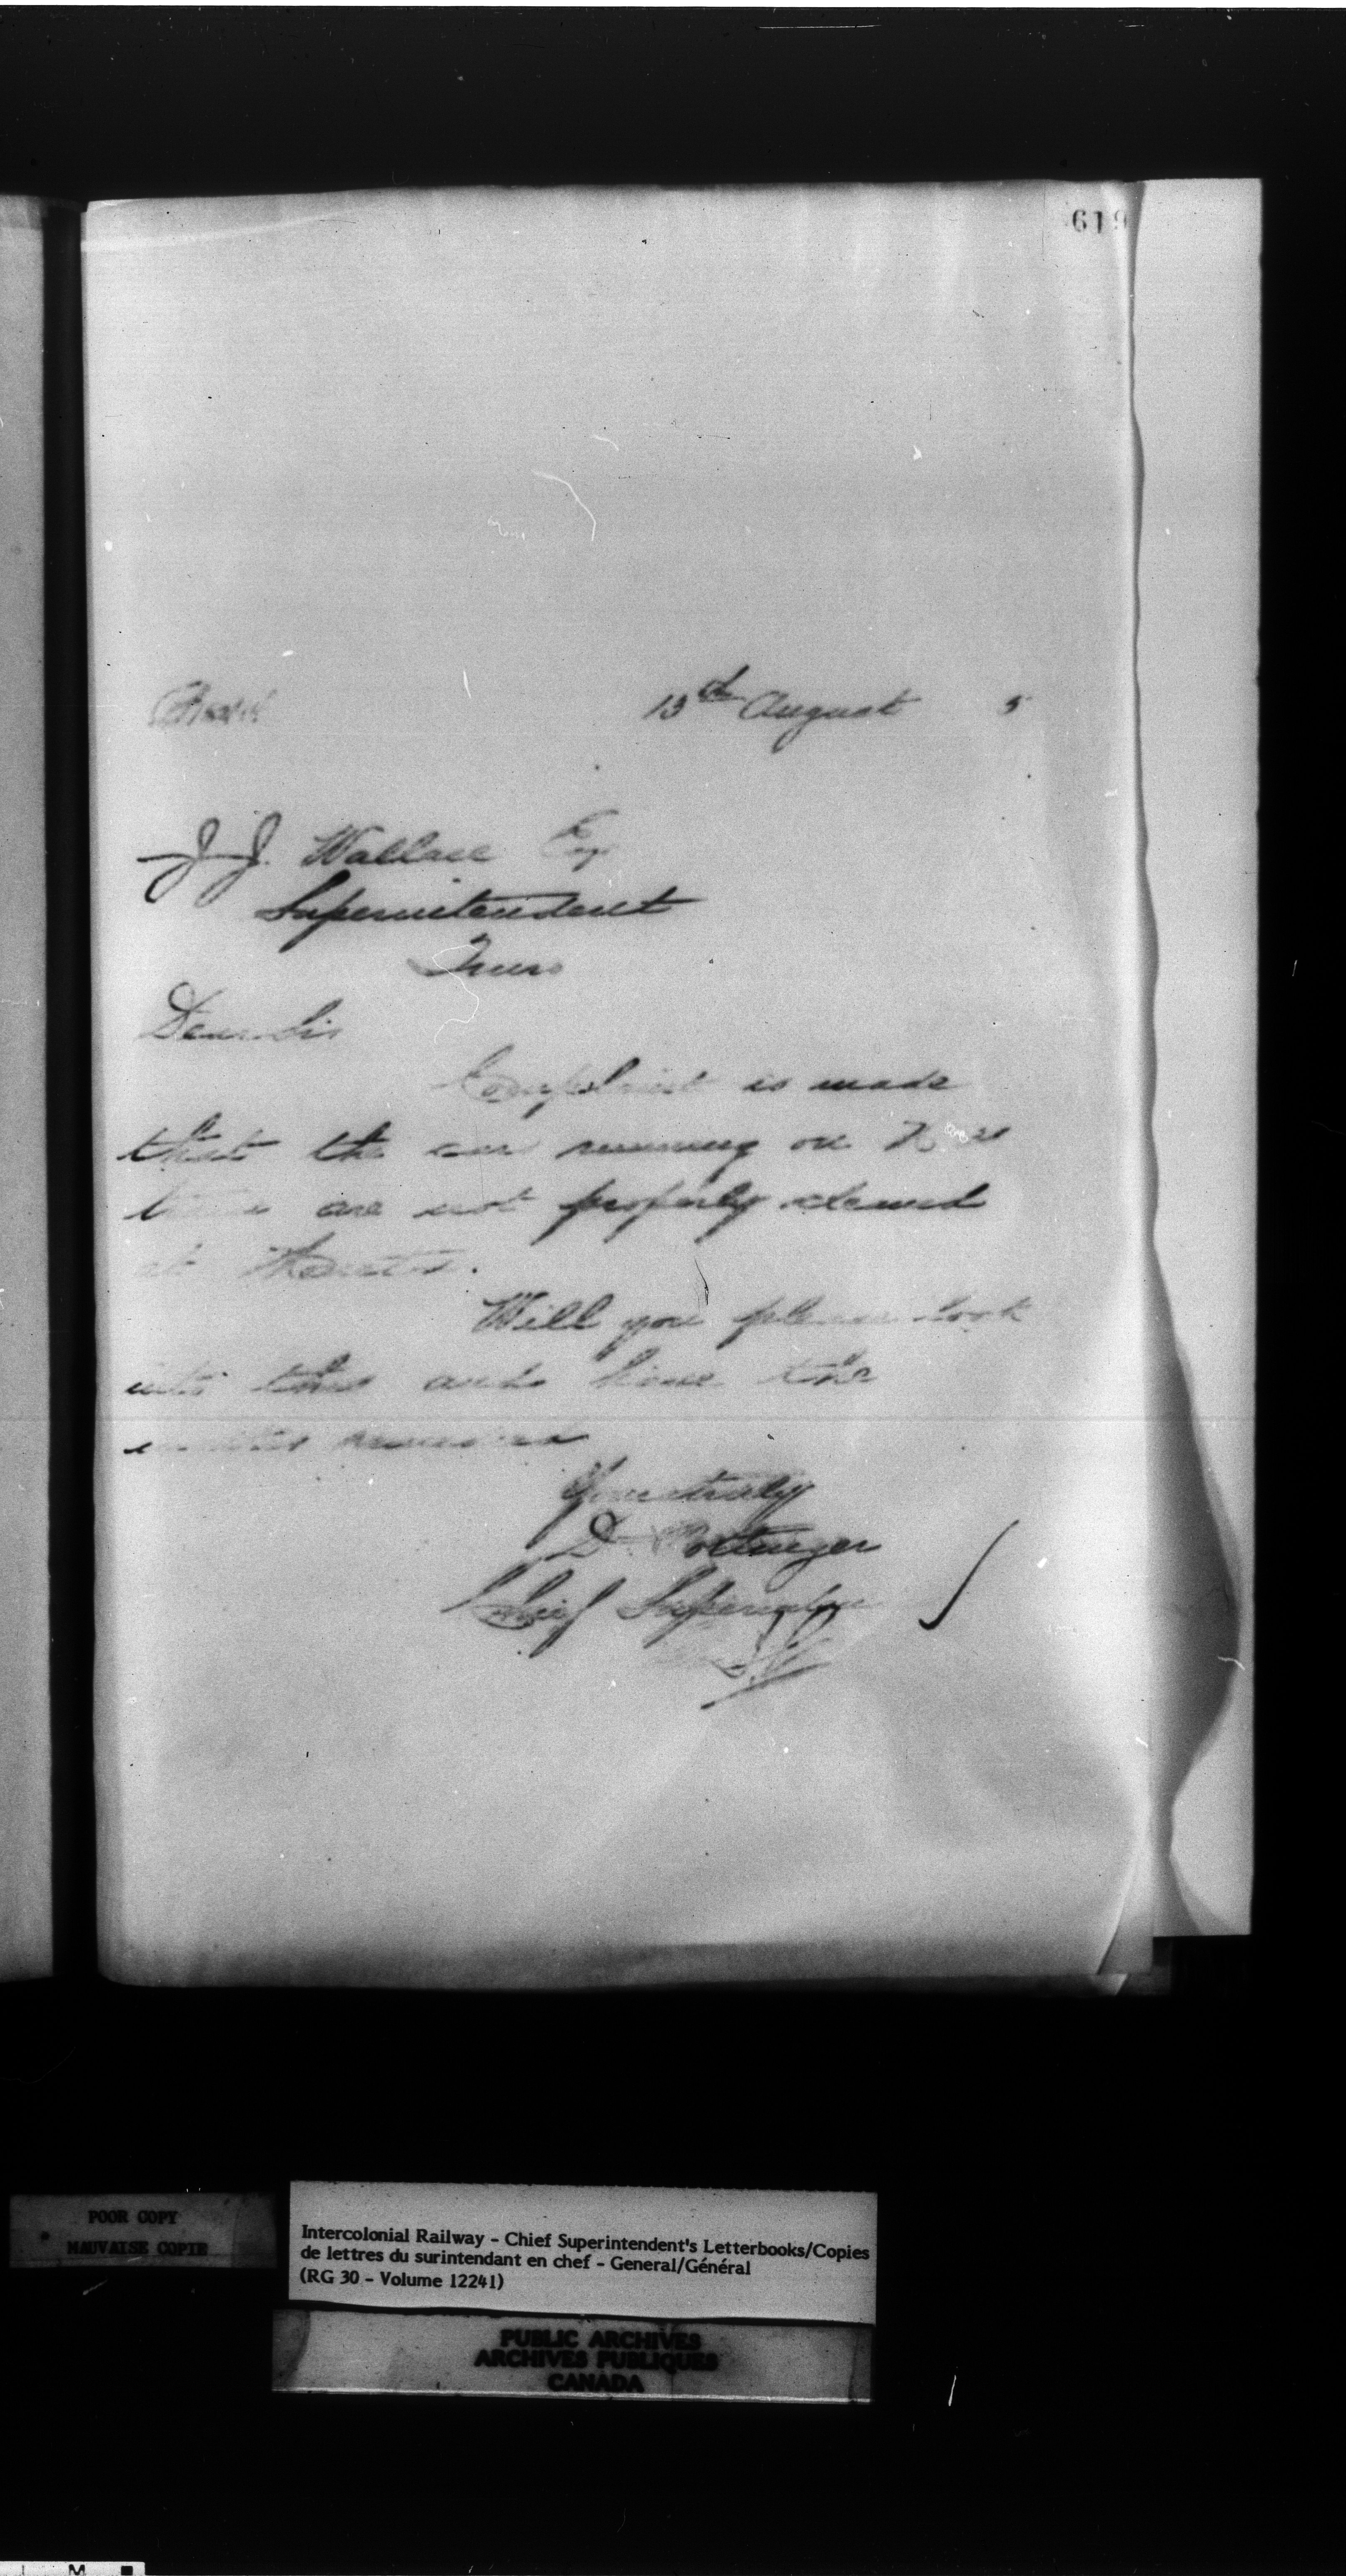 619
13th August 5
J.J. Wallace Esq
Superintendent
Truro
Dear Sir
Complaint is made
that the cars running on
are not properly cleaned
at
Will you please look
into this and have the
matter remedied
Yours truly
D Pottinger
Chief Superintdn
POOR COPY
MAUVAISE COPIE
Intercolonial Railway - Chief Superintendent's Letterbooks/Copies
de lettres du surintendant en chef - General/Général
(RG 30 - Volume 12241)
PUBLIC ARCHIVES
ARCHIVES PUBLIQUES
CANADA